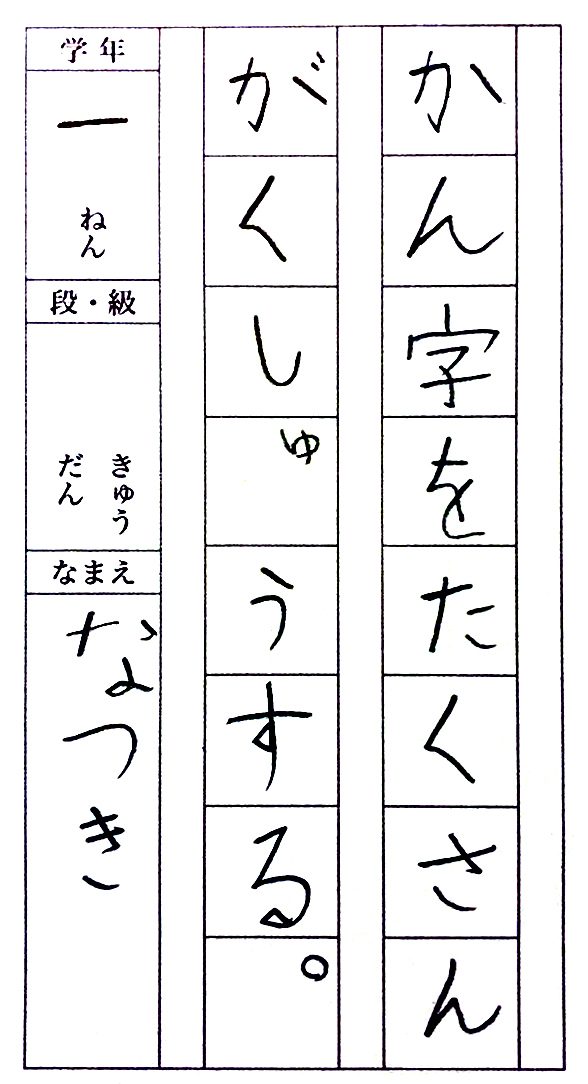 かん字をたくさん
がくしゅうする。
学年
一ねん
段・級
きゅう
だん
なまえ
なつき